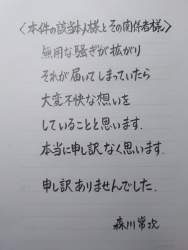 〈本件の該当本人様とその関係者様〉
無用な騒ぎが拡がり
それが届いてしまっていたら
大変不快な想いを
していることと思います.
本当に申し訳なく思います.
申し訳ありませんでした.
森川常次